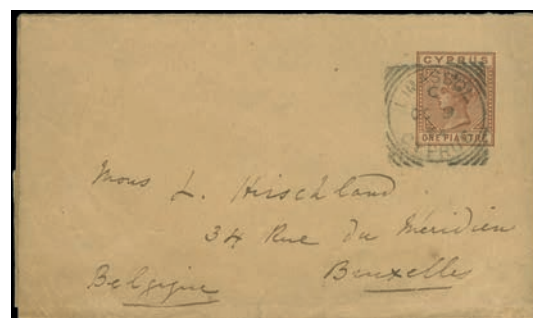 CYPRUS
LIMASSOL
CYPRUS
ONE PIASTRE
Mons L. Hirschland.
34 Rue du Méridien
Bruxelles
Belgique